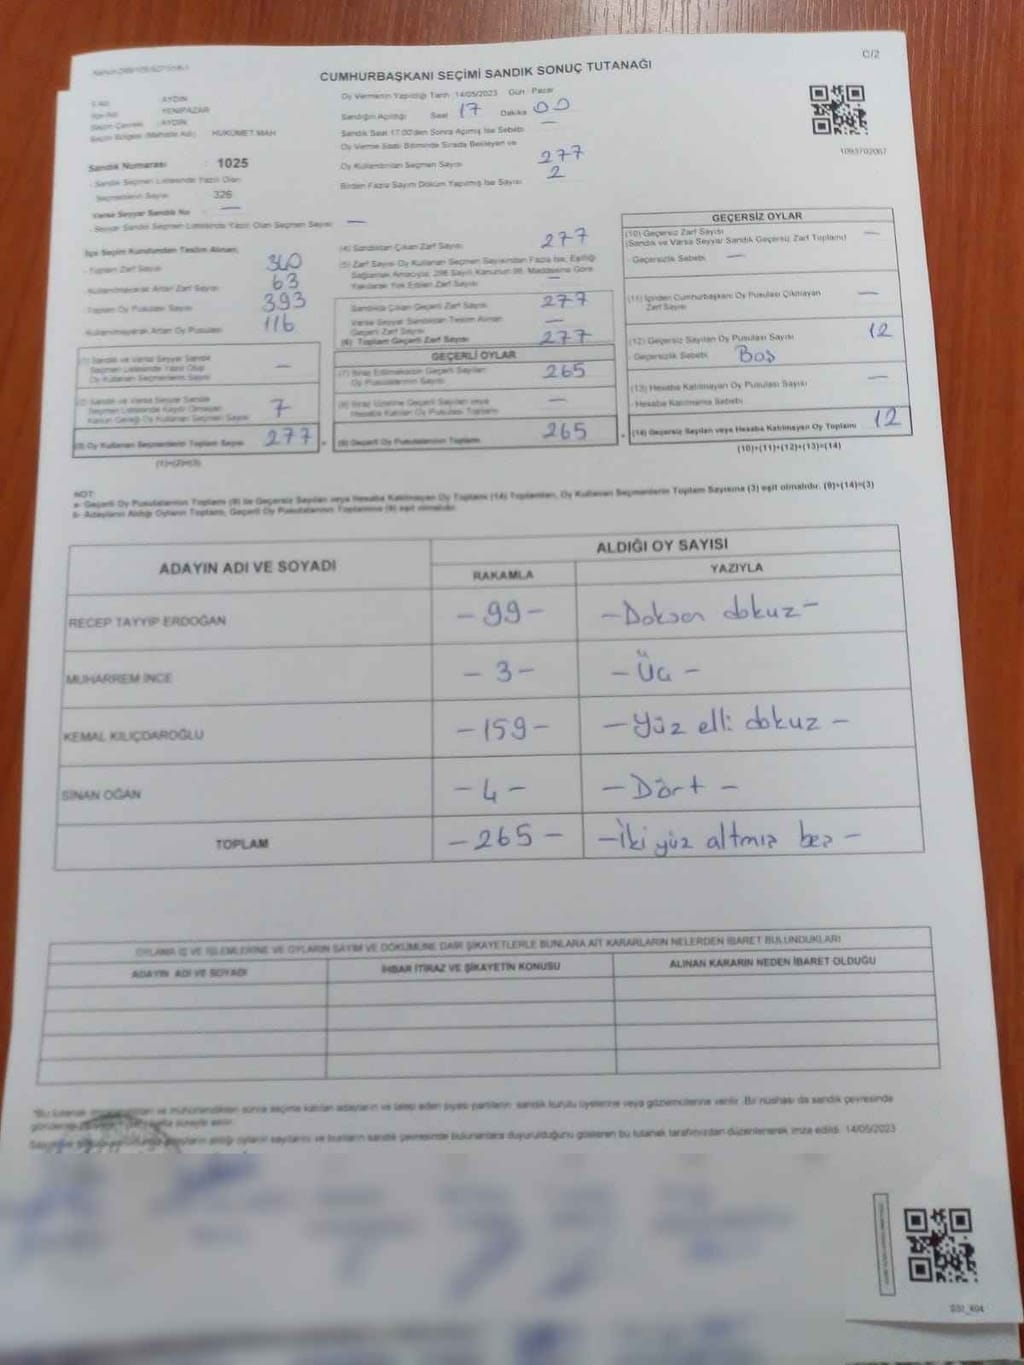 C/2
CUMHURBAŞKANI SEÇİMİ SANDIK SONUÇ TUTANAĞI
Oy Vermenin Yapıldığı Tarih :14/05/2023 Gün : Pazar
Sandığın Açıldığı Saat 17 Dakika 00
Sandık Saat 17:00'den Sonra Açılmış İse Sebebi —
Oy Verme Saati Bitiminde Sırada Bekleyen ve
Oy Kullandırılan Seçmen Sayısı 277
Birden Fazla Sayım Döküm Yapılmış İse Sayısı 2
: AYDIN
: YENİPAZAR
: AYDIN
HÜKÜMET MAH
Sandık Numarası : 1025
Sandık Seçmen Listesinde Yazılı Olan
Seçmenlerin Sayısı 326
Varsa Seyyar Sandık No —
- Seyyar Sandık Seçmen Listesinde Yazılı Olan Seçmen Sayısı —
1093702067
İlçe Seçim Kurulundan Teslim Alınan;
- Toplam Zarf Sayısı 340
Kullanılmayarak Artan Zarf Sayısı 63
Toplam Oy Pusulası Sayısı 393
Kullanılmayarak Artan Oy Pusulası 116
(1) Sandık ve Varsa Seyyar Sandık
Seçmen Listesinde Yazılı Olup
Oy Kullanan Seçmenlerin Sayısı —
(2) Sandık ve Varsa Seyyar Sandık
Seçmen Listesinde Kayıtlı Olmayan
Kanun Gereği Oy Kullanan Seçmen Sayısı 7
(3) Oy Kullanan Seçmenlerin Toplam Sayısı 277
(1)+(2)=(3)
(4) Sandıktan Çıkan Zarf Sayısı 277
(5) Zarf Sayısı Oy Kullanan Seçmen Sayısından Fazla İse, Eşitliği
Sağlamak Amacıyla, 298 Sayılı Kanunun 98. Maddesine Göre
Yakılarak Yok Edilen Zarf Sayısı —
Sandıkta Çıkan Geçerli Zarf Sayısı 277
Varsa Seyyar Sandıktan Teslim Alınan
Geçerli Zarf Sayısı —
(6) Toplam Geçerli Zarf Sayısı 277
GEÇERLİ OYLAR
(7) İtiraz Edilmeksizin Geçerli Sayılan
Oy Pusulalarının Sayısı 265
(8) İtiraz Üzerine Geçerli Sayılan veya
Hesaba Katılan Oy Pusulası Toplamı —
(9) Geçerli Oy Pusulalarının Toplamı 265
GEÇERSİZ OYLAR
(10) Geçersiz Zarf Sayısı —
(Sandık ve Varsa Seyyar Sandık Geçersiz Zarf Toplamı)
- Geçersizlik Sebebi —
(11) İçinden Cumhurbaşkanı Oy Pusulası Çıkmayan
Zarf Sayısı —
(12) Geçersiz Sayılan Oy Pusulası Sayısı 12
- Geçersizlik Sebebi Boş
(13) Hesaba Katılmayan Oy Pusulası Sayısı —
- Hesaba Katılmama Sebebi
(14) Geçersiz Sayılan veya Hesaba Katılmayan Oy Toplamı 12
(10)+(11)+(12)+(13)=(14)
NOT:
a- Geçerli Oy Pusulalarının Toplamı (9) ile Geçersiz Sayılan veya Hesaba Katılmayan Oy Toplamı (14) Toplamları, Oy Kullanan Seçmenlerin Toplam Sayısına (3) eşit olmalıdır. (9)+(14)=(3)
b- Adayların Aldığı Oyların Toplamı, Geçerli Oy Pusulalarının Toplamına (9) eşit olmalıdır.
ADAYIN ADI VE SOYADI
ALDIĞI OY SAYISI
RAKAMLA YAZIYLA
RECEP TAYYİP ERDOĞAN -99- -Doksan dokuz-
MUHARREM İNCE -3- -Üç-
KEMAL KILIÇDAROĞLU -159- -Yüz elli dokuz-
SİNAN OĞAN -4- -Dört-
TOPLAM -265- -İki yüz altmış beş-
OYLAMA İŞ VE İŞLEMLERİNE VE OYLARIN SAYIM VE DÖKÜMÜNE DAİR ŞİKAYETLERLE BUNLARA AİT KARARLARIN NELERDEN İBARET BULUNDUKLARI
ADAYIN ADI VE SOYADI İHBAR İTİRAZ VE ŞİKAYETİN KONUSU ALINAN KARARIN NEDEN İBARET OLDUĞU
ve mühürlendikten sonra seçime katılan adayların ve talep eden siyasi partilerin sandık kurulu üyelerine veya gözlemcilerine verilir. Bir nüshası da sandık çevresinde
adayların aldığı oyların sayılarını ve bunların sandık çevresinde bulunanlara duyurulduğunu gösteren bu tutanak tarafımızdan düzenlenerek imza edildi. 14/05/2023